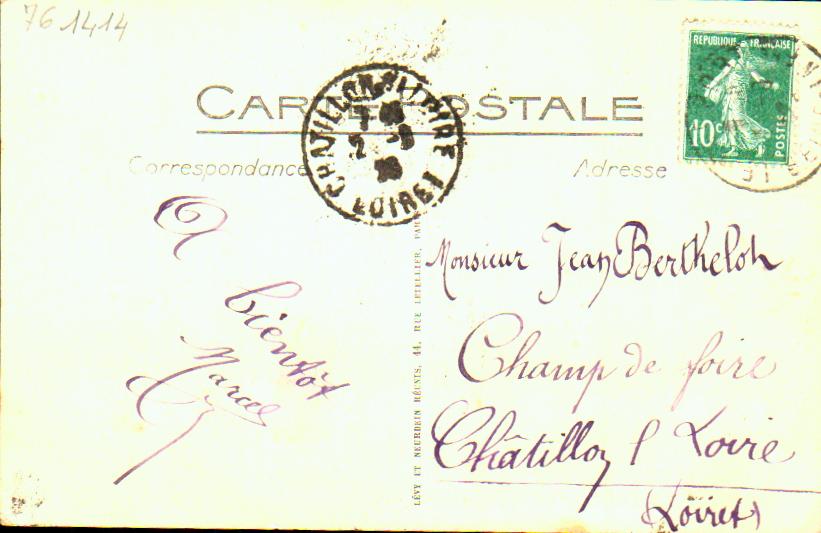 76 1414
REPUBLIQUE FRANÇAISE
10c
POSTES
CARTE POSTALE
CHATILLON S/LOIRE
2 - 8
LOIRET
Correspondance
Adresse
A
bientôt
Marcel
LÉVY ET NEURDEIN RÉUNIS, 44, RUE LETELLIER, PARIS
Monsieur Jean Berthelot
Champ de foire
Châtillon s/ Loire
(Loiret)